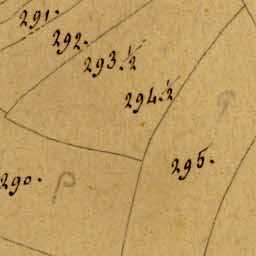 291.
292.
293.½
294.½
295.
290.
P